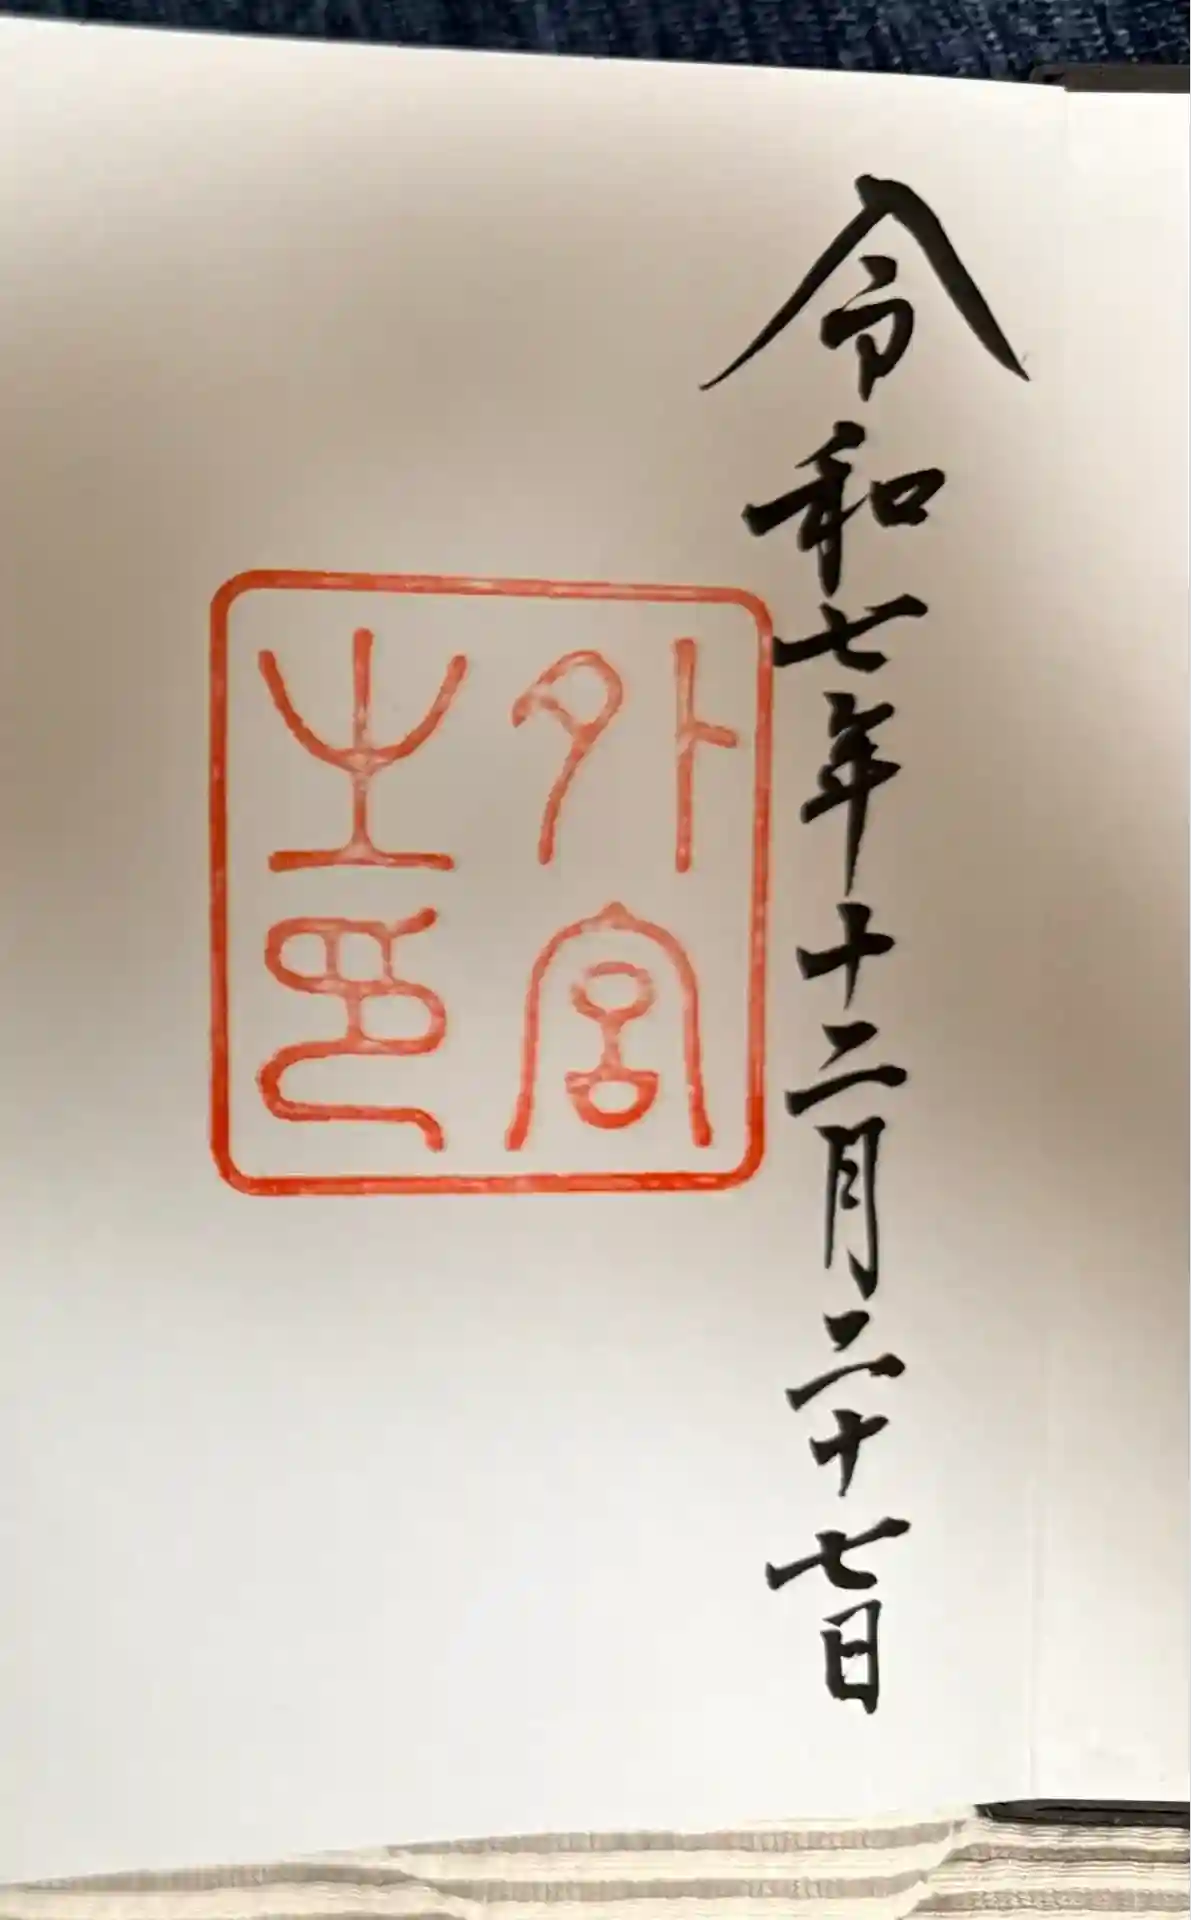 令和七年十二月二十七日
外宮
之印